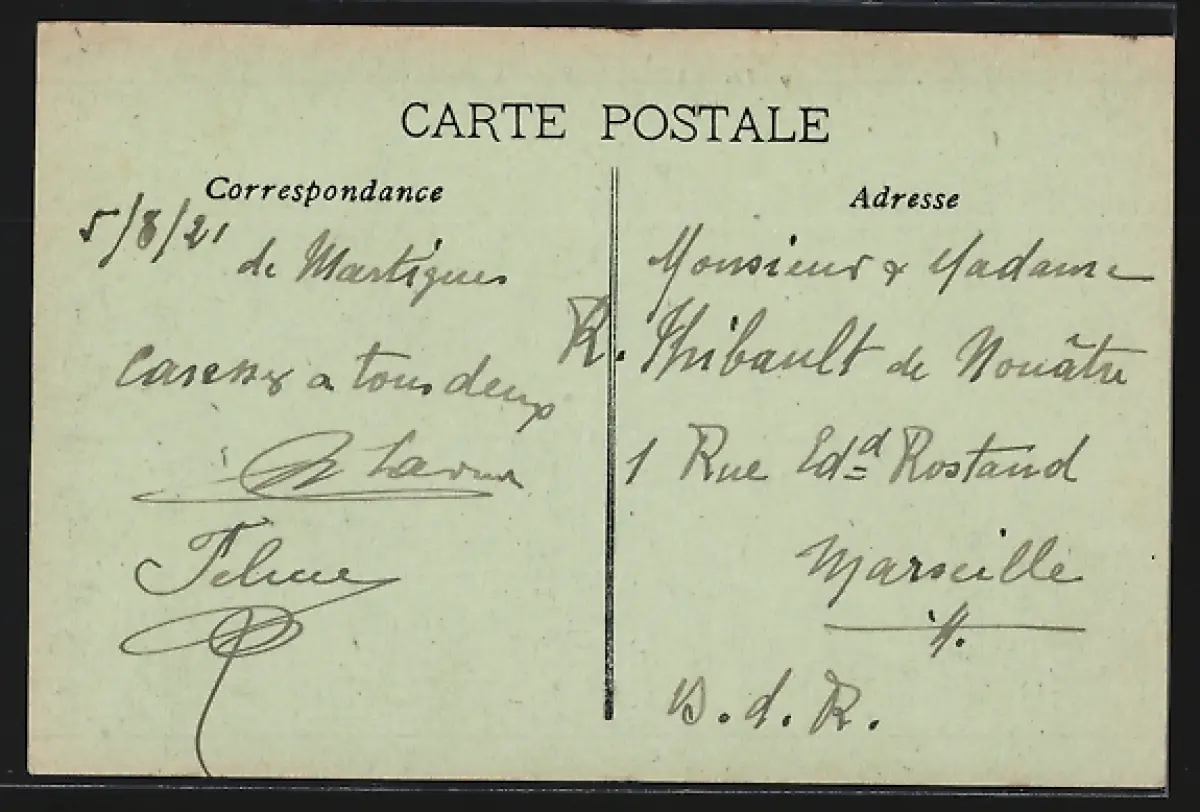 CARTE POSTALE
Correspondance
5/8/21
de Martigues
Caresses a tous deux
Adresse
Monsieur & Madame
R. Thibault de Nouâtre
1 Rue Edd Rostand
Marseille
B. d. R.